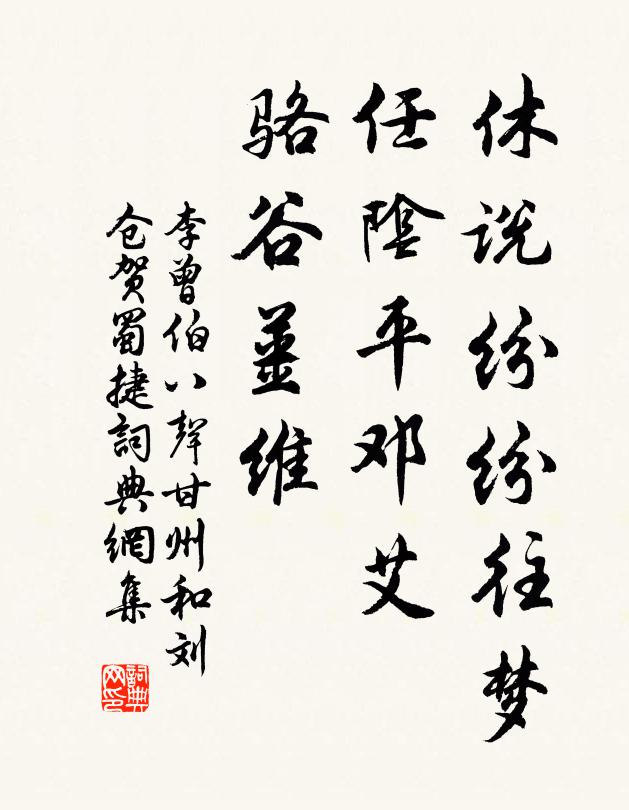 休说纷纷往梦
任阴平邓艾
骆谷姜维
李曾伯八聲甘州和刘
仓贺蜀捷詞典網集
詞典網印